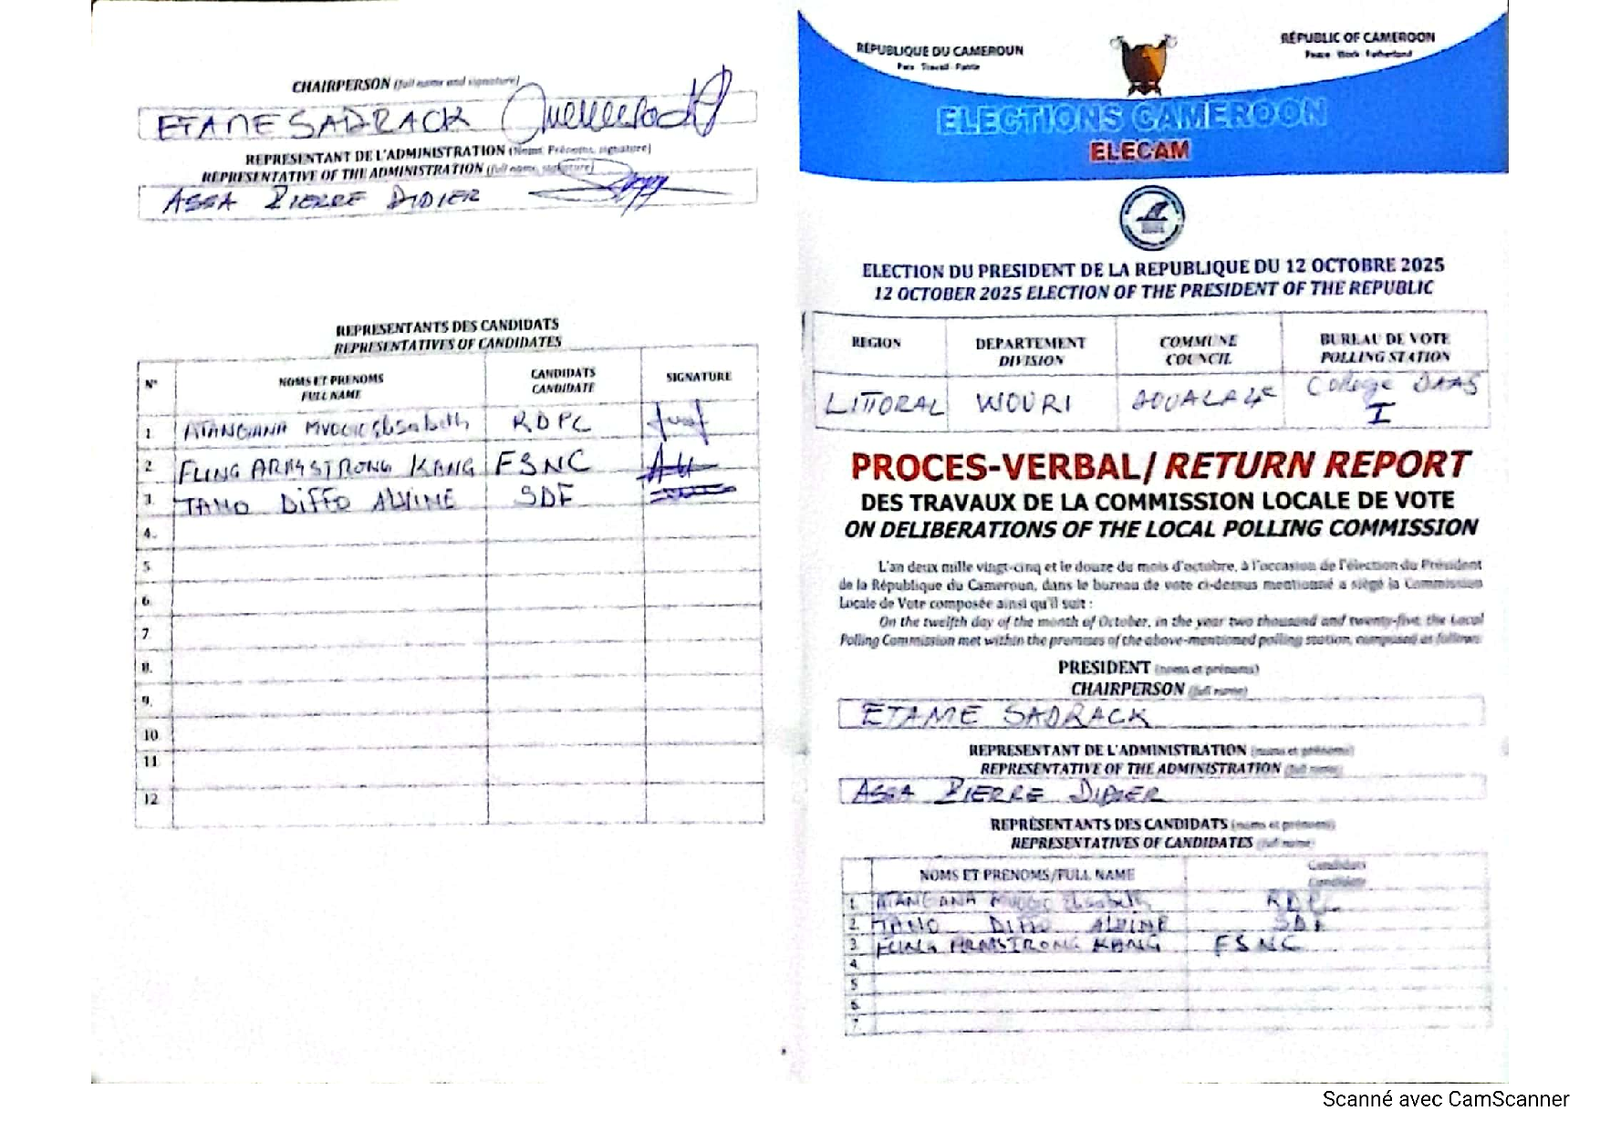 CHAIRPERSON (full name and signature)
ETAME SADRACK
REPRESENTANT DE L'ADMINISTRATION (Noms, Prénoms, signature)
REPRESENTATIVE OF THE ADMINISTRATION (full name, signature)
ASSA PIERRE DIDIER
REPRESENTANTS DES CANDIDATS
REPRESENTATIVES OF CANDIDATES
N° NOMS ET PRENOMS FULL NAME CANDIDATS CANDIDATE SIGNATURE
1. ATANGANA Elisabeth RDPC
2. FUNG ARMSTRONG KANG FSNC
3. TANO DIFFO ALVINE SDF
4.
5.
6.
7.
8.
9.
10.
11
12
REPUBLIQUE DU CAMEROUN
Paix Travail Patrie
REPUBLIC OF CAMEROON
Peace Work Fatherland
ELECTIONS CAMEROON
ELECAM
ELECTION DU PRESIDENT DE LA REPUBLIQUE DU 12 OCTOBRE 2025
12 OCTOBER 2025 ELECTION OF THE PRESIDENT OF THE REPUBLIC
REGION DEPARTEMENT DIVISION COMMUNE COUNCIL BUREAU DE VOTE POLLING STATION
LITTORAL WOURI DOUALA 4e College DAAS I
PROCES-VERBAL/ RETURN REPORT
DES TRAVAUX DE LA COMMISSION LOCALE DE VOTE
ON DELIBERATIONS OF THE LOCAL POLLING COMMISSION
L'an deux mille vingt-cinq et le douze du mois d'octobre, à l'occasion de l'élection du Président
de la République du Cameroun, dans le bureau de vote ci-dessus mentionné a siégé la Commission
Locale de Vote composée ainsi qu'il suit :
On the twelfth day of the month of October, in the year two thousand and twenty-five, the Local
Polling Commission met within the premises of the above-mentioned polling station, composed as follows:
PRESIDENT (noms et prénoms)
CHAIRPERSON (full name)
ETAME SADRACK
REPRESENTANT DE L'ADMINISTRATION (noms et prénoms)
REPRESENTATIVE OF THE ADMINISTRATION (full name)
ASSA PIERRE DIDIER
REPRESENTANTS DES CANDIDATS (noms et prénoms)
REPRESENTATIVES OF CANDIDATES (full name)
NOMS ET PRENOMS/FULL NAME Candidats Candidate
1. ATANGANA Elisabeth RDPC
2. TANO DIFFO ALVINE SDF
3. FUNG ARMSTRONG KANG FSNC
4.
5
6.
7.
Scanné avec CamScanner